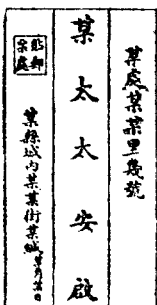 某處某某里幾號
某太太安啟
某縣城內某某街某緘
某月某日
貼郵票處